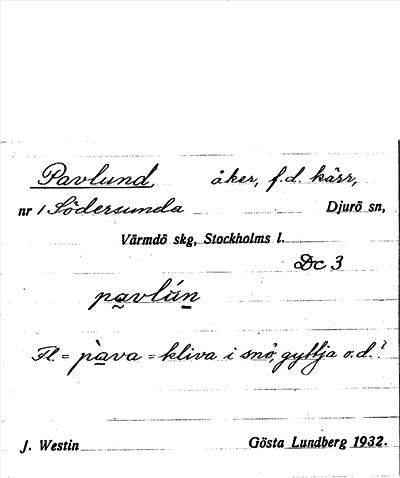 Pavlund, åker, f.d. kärr,
nr 1 Södersunda Djurö sn,
Värmdö skg, Stockholms l.
Dc 3
pavlún
Fl. = pàva = kliva i snö, gyttja o.d.?
J. Westin Gösta Lundberg 1932.